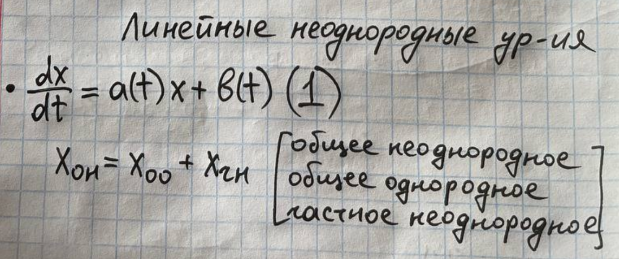 Линейные неоднородные ур-ия
• dx/dt = a(t)x + b(t) (1)
xон = xоо + xчн [общее неоднородное
общее однородное
частное неоднородное]